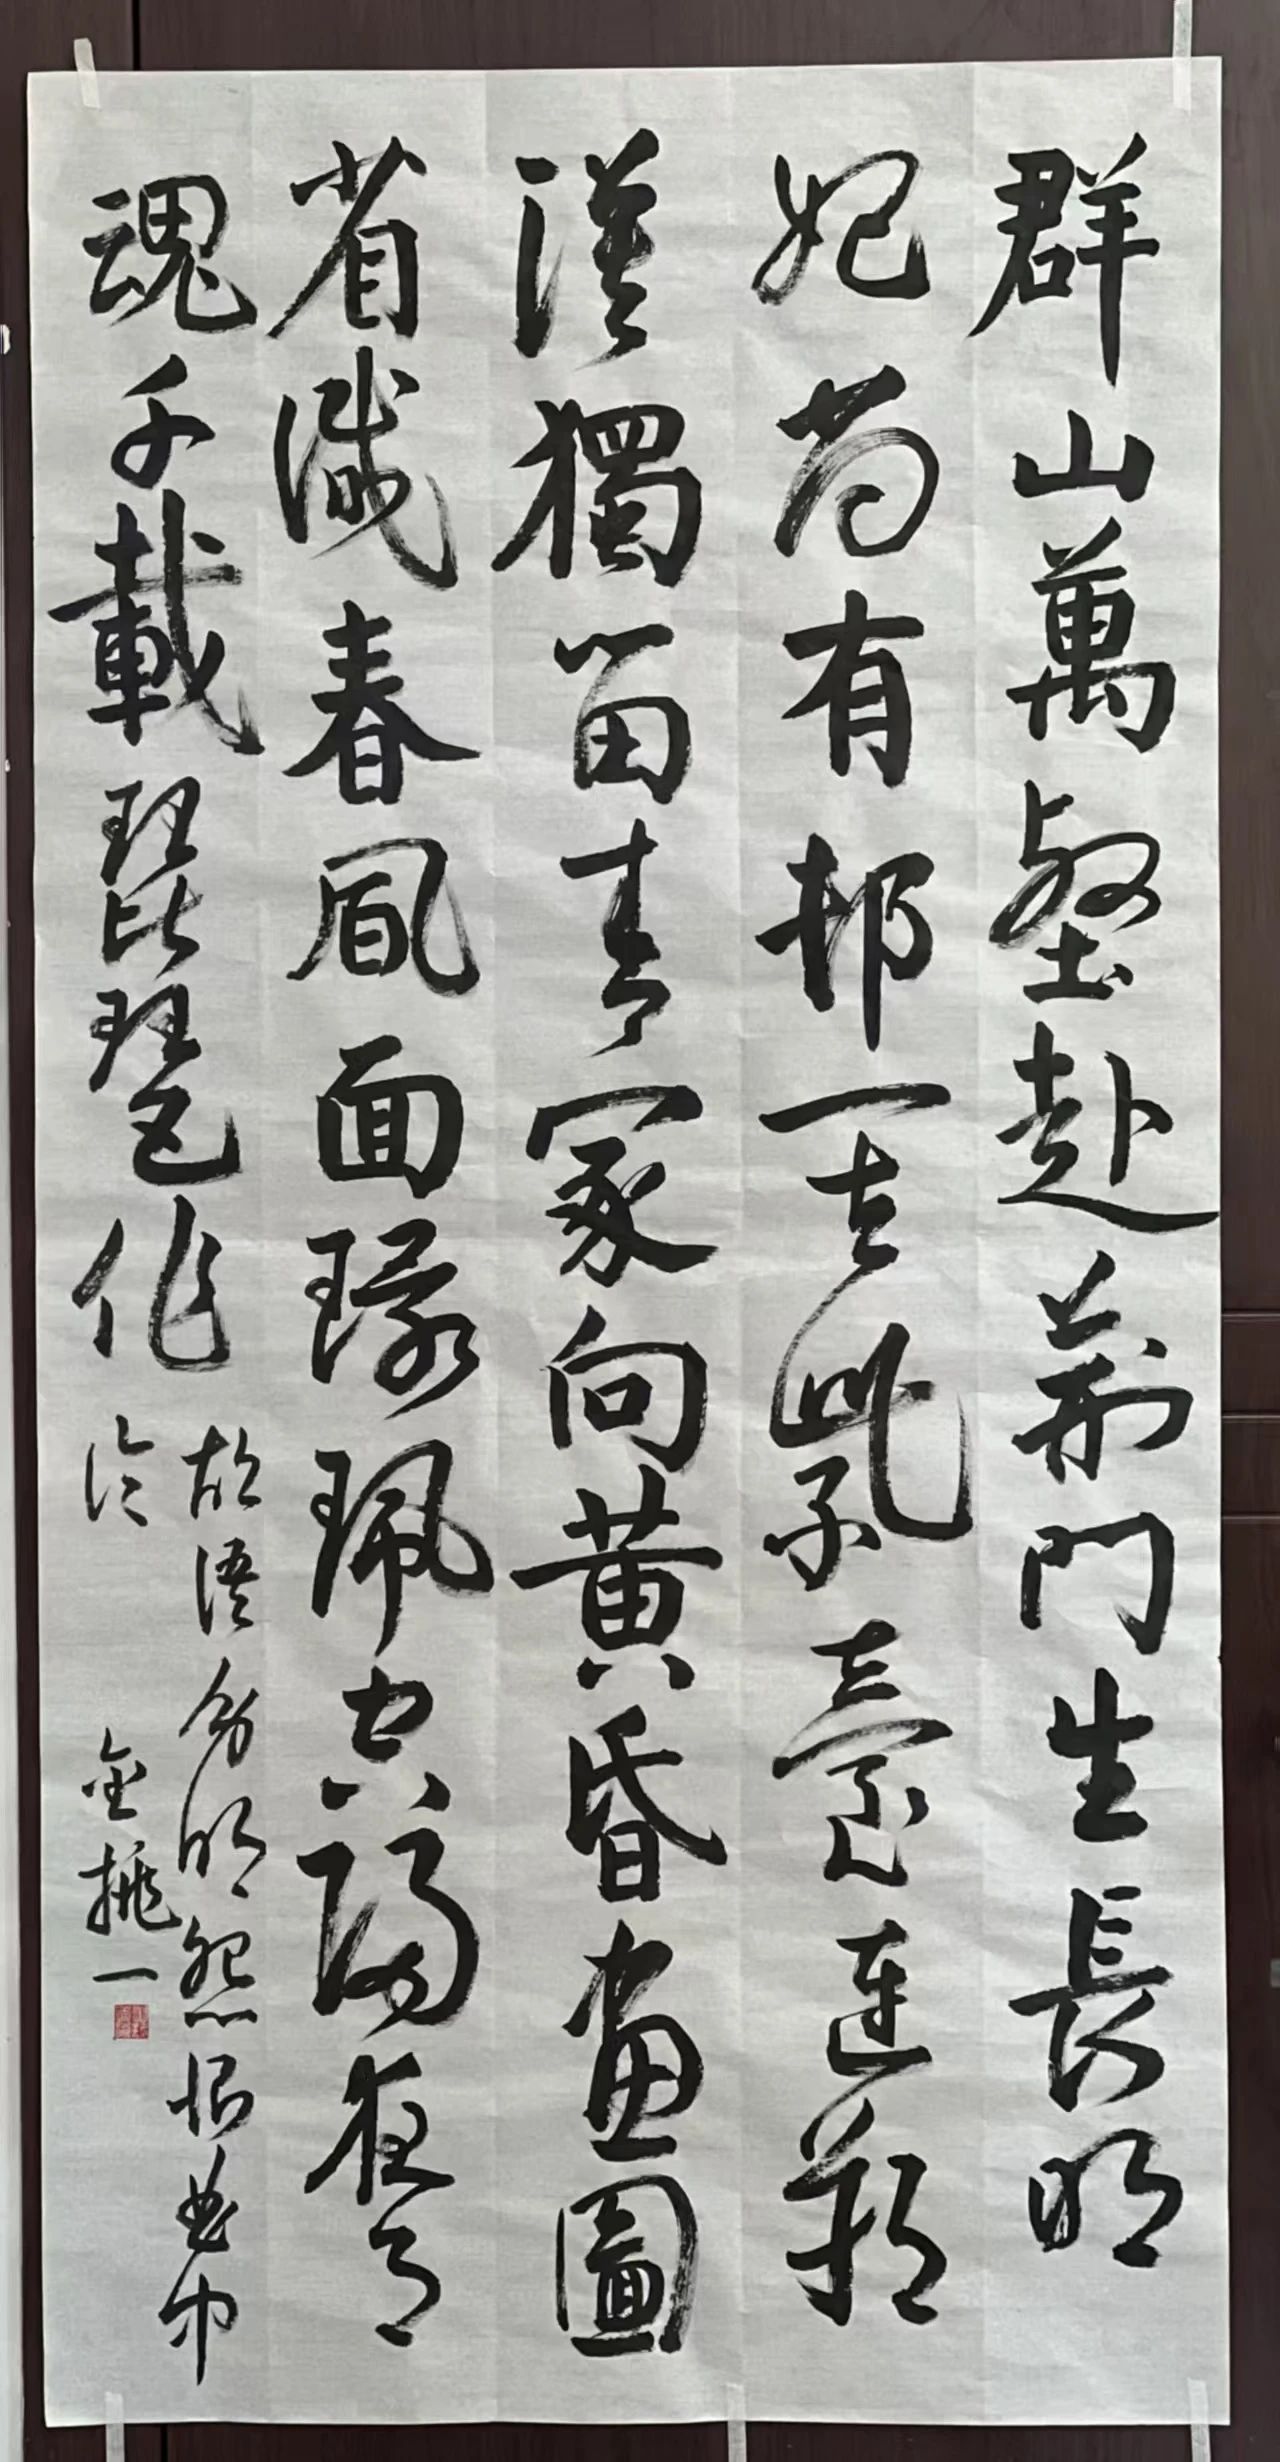 群山萬壑赴荊門生長明
妃尚有邨一去紫臺連朔
漠獨留青冢向黃昏畫圖
省識春風面環珮空歸夜月
魂千載琵琶作
胡語分明怨恨曲中
論
金挑一